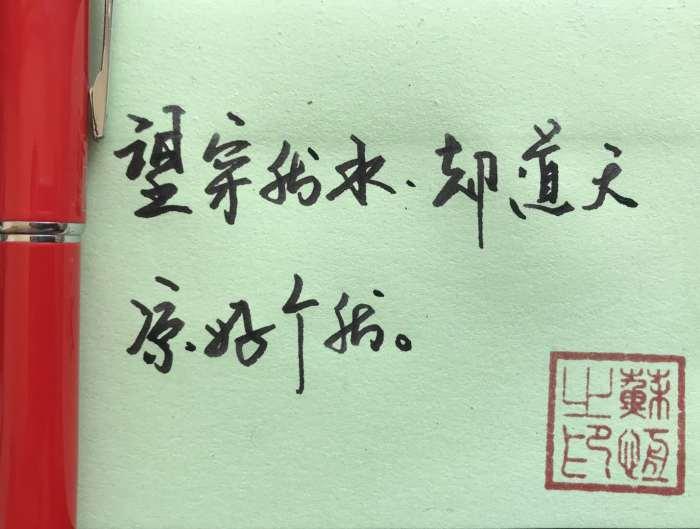 望穿秋水、却道天
凉好个秋。
蘇恒之印